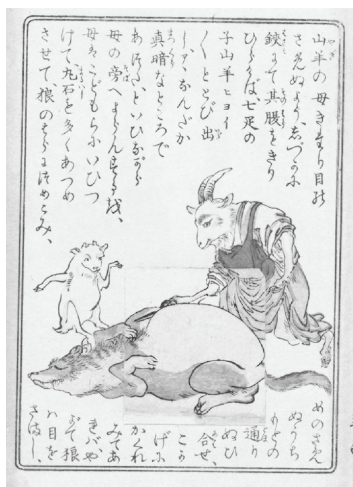 山羊の母きたり目の
さえぬやう、しづかに
鋏にて其腹をきり
ひらけば七疋の
子山羊ヒヨイ
〱ととび出
し、アヽなんだか
真暗なところで
あつた、といひながら
母の旁へまゐらんとする故、
母ハこどもらにいひつ
けて丸石を多くあつめ
させて狼のはらにつめこみ、
めのさえ
ぬうち
もとの
通り
ぬひ
合せ、
こか
げに
かくれ
みてあ
れバ、や
がて狼
ハ目を
さまし、